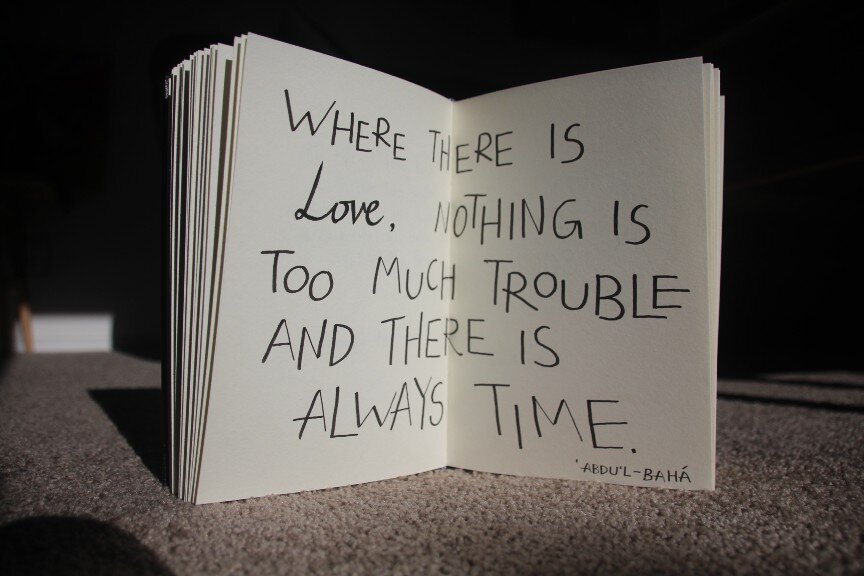 WHERE THERE IS
Love, NOTHING IS
TOO MUCH TROUBLE
AND THERE IS
ALWAYS TIME.
'ABDU'L-BAHÁ